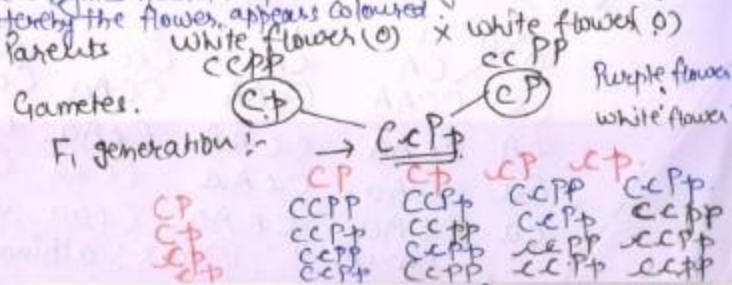 tereby the flower, appears coloured.
Parents white flower (O) × white flower (O)
CCpp ccPP
Gametes. Cp cP Purple flower
white flower
F1 generation :- → CcPp
CP Cp cP cp
CP CCPP CCPp CcPP CcPp
Cp CCPp CCpp CcPp Ccpp
cP CcPP CcPp ccPP ccPp
cp CcPp Ccpp ccPp ccpp